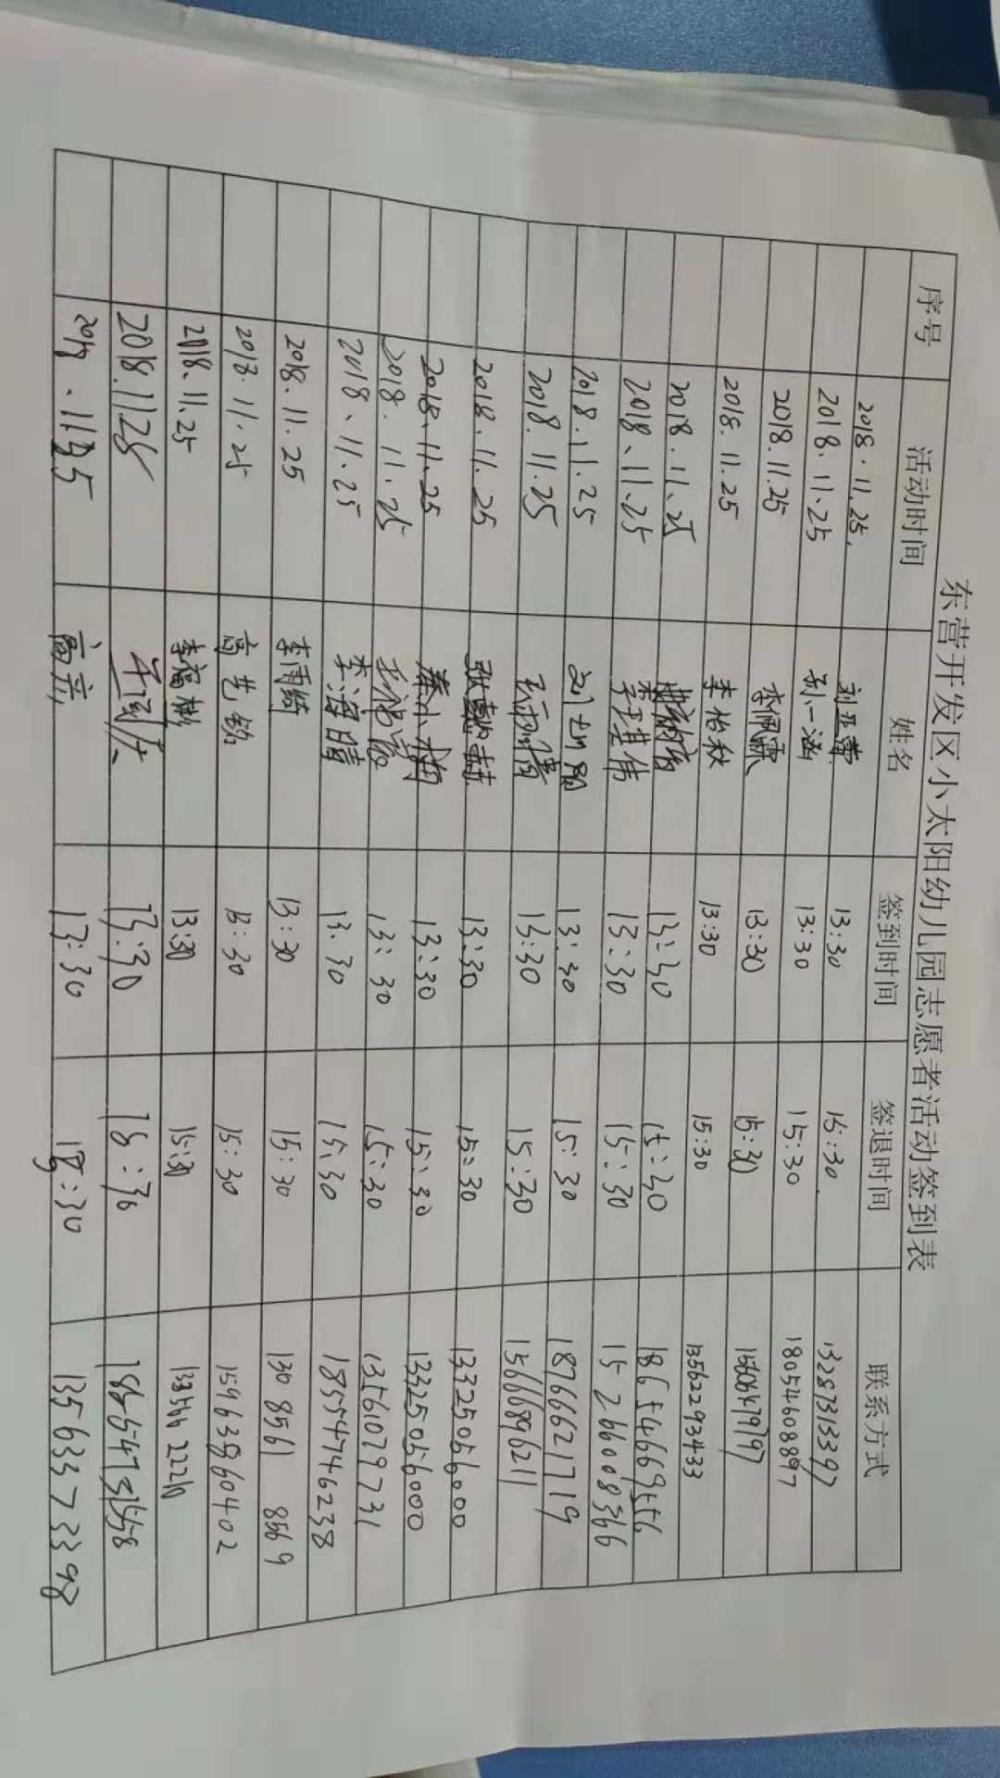 东营开发区小太阳幼儿园志愿者活动签到表
序号 活动时间 姓名 签到时间 签退时间 联系方式
2018.11.25. 刘亚蕾 13:30 15:30. 13287313397
2018、11、25 刘一涵 13:30 15:30 18054608897
2018.11.25 李佩霖 13:30 15:30 15606479797
2018.11.25 李怡秋 13:30 15:30 13562293433
2018.11.25 13:30 15:30 18654669556
2018、11、25 李建伟 13:30 15:30 15266008366
2018.11.25 13:30 15:30 18766621719
2018.11.25 13:30 15:30 15666896211
2018.11.25 13:30 15:30 13325056000
2018.11.25 秦小棚 13:30 15:30 13325056000
2018.11.25 13:30 15:30 13561079731
2018、11.25 李海晴 13.30 15:30 18554746238
2018.11.25 李雨绮 13:30 15:30 130 8561 8569
2018.11.25 高艺铭 13:30 15:30 15963860402
2018、11.25 李富彬 13:30 15:30
2018.11 25 13:30
高亮 13:30 13563373398